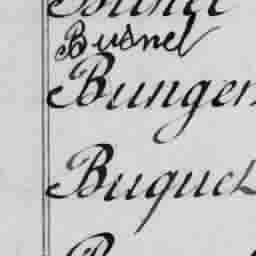 Busnel
Bungen
Buquet